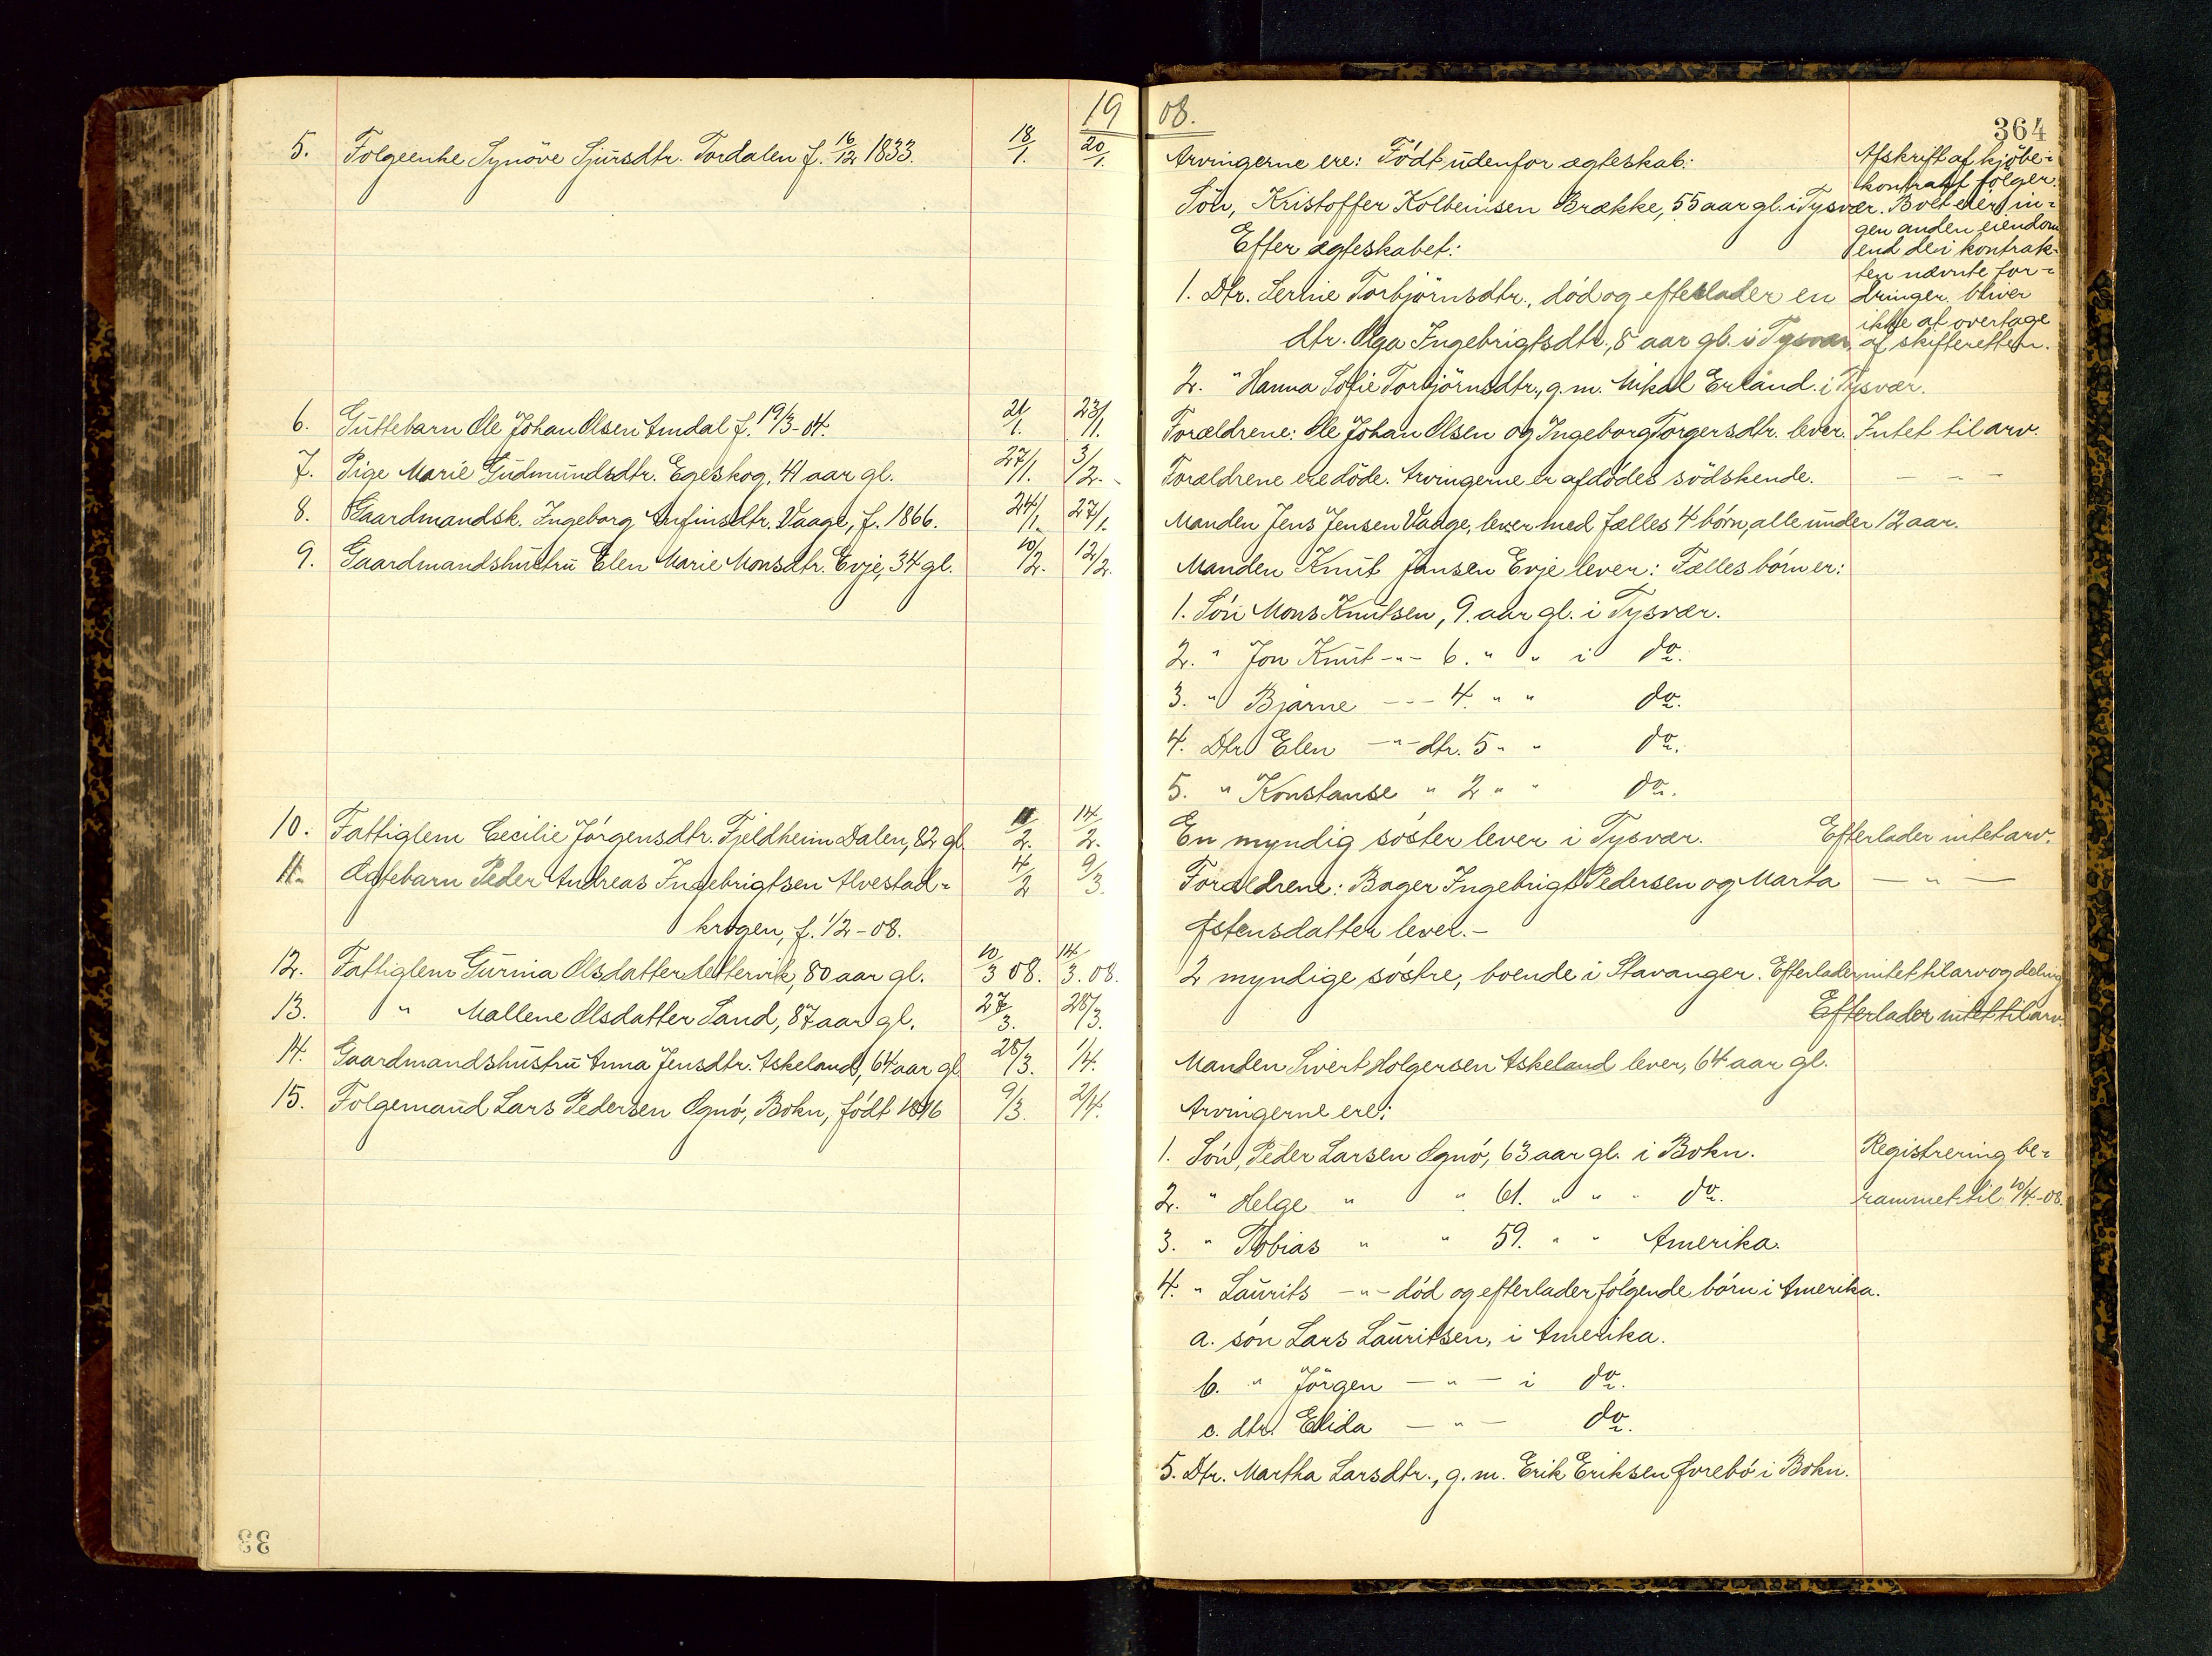 1908.
364
5. Folgeenke Synöve Sjursdtr. Tordalen f. 16/12 1833. 18/1. 20/1.
Arvingerne ere: Födt udenfor ægteskab:
Sön, Kristoffer Kolbeinsen Brække, 55 aar gl. i Tysvær.
Efter ægteskabet:
1. Dtr. Serine Torbjörnsdtr., död og efterlader en
dtr. Olga Ingebrigtsdtr., 8 aar gl. i Tysvær,
2. " Hanna Sofie Torbjörnsdtr., g. m. Mikal Erland. i Tysvær.
Afskrift af kjöbe-
kontrakt fölger.
Boet eier in-
gen anden eiendom
end de i kontrak-
ten nævnte for-
dringer. bliver
ikke at overtage
af skifteretten.
6. Guttebarn Ole Johan Olsen Amdal f. 19/3-04. 21/1. 23/1.
Forældrene: Ole Johan Olsen og Ingeborg Torgersdtr. lever. Intet til arv.
7. Pige Marie Gudmundsdtr. Egeskog, 41 aar gl. 27/1. 3/2.
Forældrene ere döde. Arvingerne er afdödes södskende. — " —
8. Gaardmandsk. Ingeborg Anfinsdtr. Vaage, f. 1866. 24/1. 27/1.
Manden Jens Jensen Vaage, lever med fælles 4 börn, alle under 12 aar.
9. Gaardmandshustru Elen Marie Monsdtr. Evje, 34 gl. 10/2. 12/2.
Manden Knut Jansen Evje lever: Fælles börn er:
1. Sön Mons Knutsen, 9. aar gl. i Tysvær.
2. " Jon Knut -"- 6. " " i do.
3. " Bjarne --- 4. " " do.
4. Dtr. Elen -"- dtr. 5 " " do.
5. " Konstanse " 2 " " do.
10. Fattiglem Cecilie Jörgensdtr. Fjeldheim Dalen, 82 gl. 11/2. 14/2.
En myndig söster lever i Tysvær. Efterlader intet arv.
11. Ægtebarn Peder Andreas Ingebrigtsen Alvestad-
krogen, f. 1/2-08. 4/2 9/3.
Forældrene: Bager Ingebrigt Pedersen og Marta — " —
Østensdatter lever. -
12. Fattiglem Gurina Olsdatter Hettervik, 80 aar gl. 10/3 08. 14/3. 08.
2 myndige söstre, boende i Stavanger. Efterlader intet til arv og deling
13. " Mallene Olsdatter Sand, 87 aar gl. 27/3. 28/3.
Efterlader intet til arv.
14. Gaardmandshustru Anna Jensdtr. Askeland, 64 aar gl. 28/3. 1/4.
Manden Sivert Holgersen Askeland lever, 64 aar gl.
15. Folgemand Lars Pedersen Ognö, Bokn, födt 1816 9/3. 2/4.
Arvingerne ere:
1. Sön, Peder Larsen Ognö, 63 aar gl. i Bokn. Registrering be-
2. " Helge " " 61. " " " do. rammet til 10/4-08.
3. " Tobias " " 59. " " Amerika.
4. " Laurits -"- död og efterlader fölgende börn i Amerika.
a. sön Lars Lauritsen, i Amerika.
b. " Jörgen — " — i do.
c. dtr. Elida — " — do.
5. Dtr. Martha Larsdtr., g. m. Erik Eriksen Øvrebö i Bokn.
33